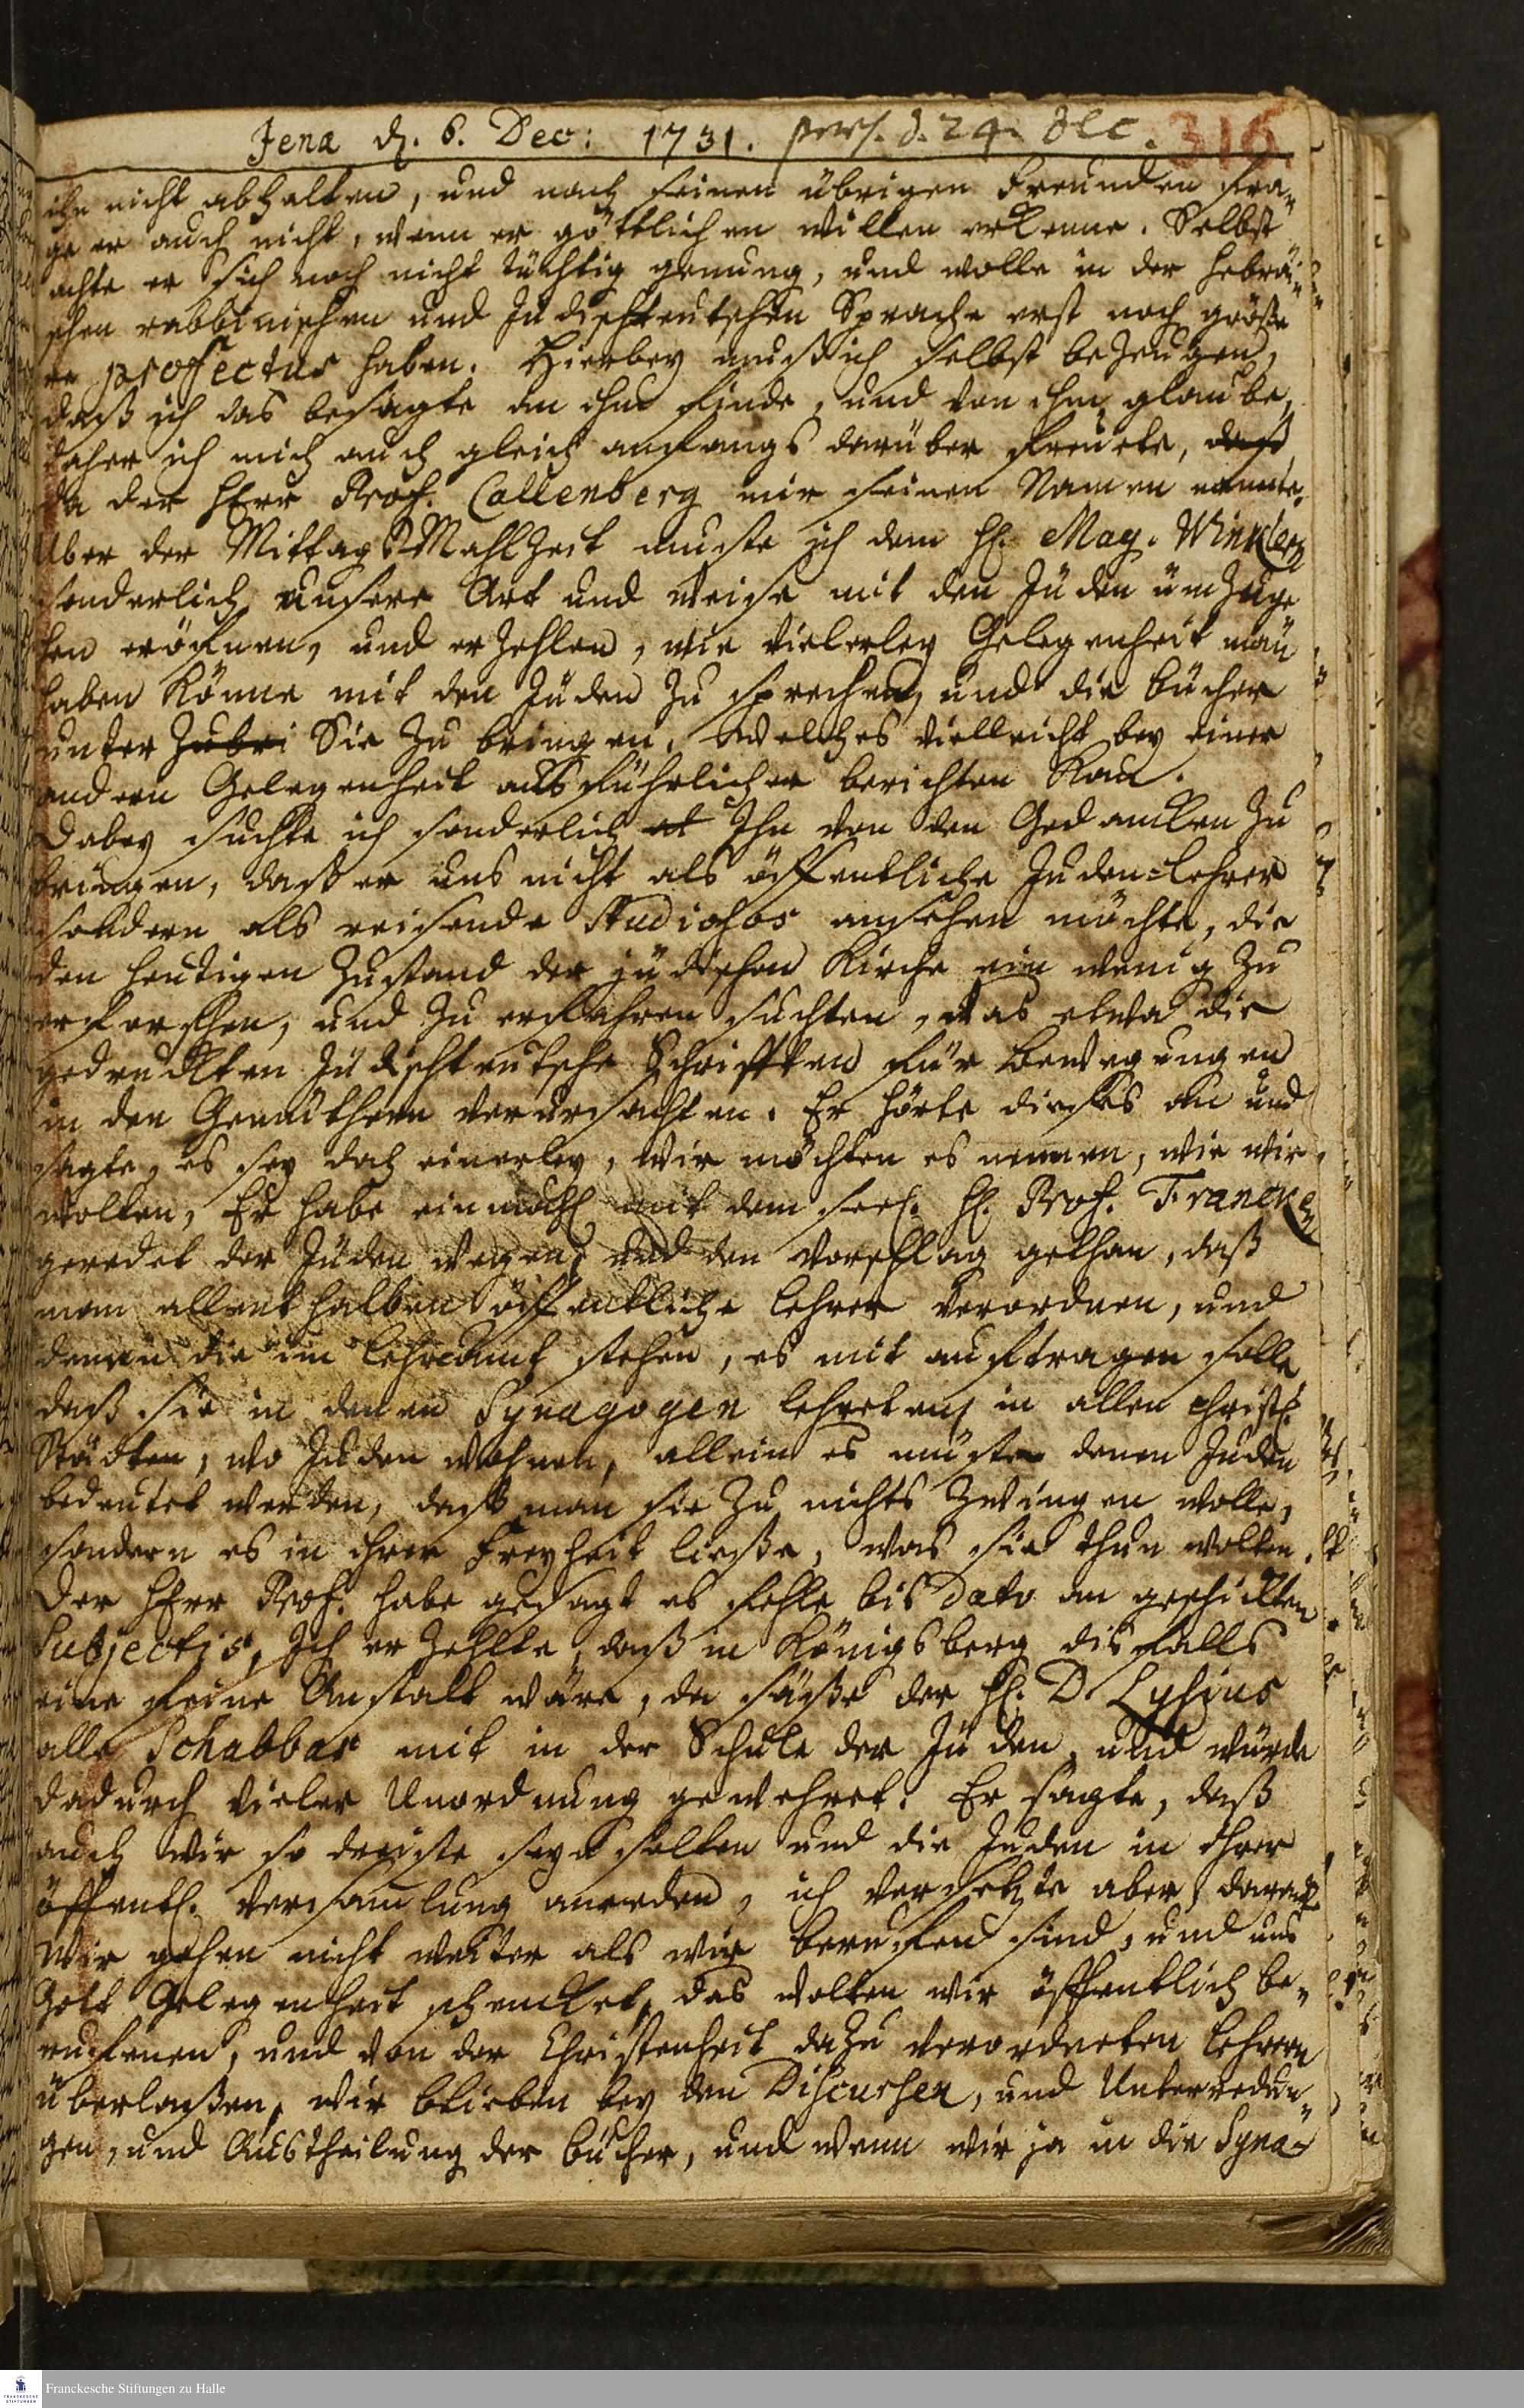 Jena d. 6. Dec: 1731. pers. d. 24. Dec.
316.
ihn nicht abhalten, und nach seinen übrigen Freunden fra-
ge er auch nicht, wenn er göttlichen willen erkenne. Selbst
achte er sich noch nicht tüchtig genung, und wolle in der Hebräi-
schen rabbinischen und Jüdischteutschen Sprache erst noch größe
re profectus haben. Hierbey muß ich selbst bezeugen,
daß ich das besagte an ihm finde, und von ihm glaube,
daher ich mich auch gleich anfangs darüber freuete, daß
da der Herr Prof. Callenberg mir seinen Namen nennte.
Uber der Mittags Mahlzeit muste ich dem H. Mag. Winklern
sonderlich unsere Art und Weise mit den Jüden umzuge
hen eröfnen, und erzehlen, wie vielerley Gelegenheit man
haben könne mit den Jüden zu sprechen, und die bücher
unter zubri Sie zu bringen, welches vielleicht bey einer
andern Gelegenheit ausführlicher berichten kan.
Dabey suchte ich sonderlich at Ihn von den Gedancken zu
bringen, daß er uns nicht als öffentliche Juden-Lehrer
sondern als reisende Studiosos ansehen möchte, die
den heutigen Zustand der jüdischen Kirche ein wenig zu
erforschen, und zu erfahren suchten, was etwa die
gedruckten Jüdischteutsche Schrifften für Bewegungen
in den Gemüthern verursachten. Er hörte dieses an und
sagte, es sey doch einerley, wir möchten es nennen, wie wir
wolten, Er habe einmahl mit dem seel. H. Prof. Francken
geredet der Jüden wegen, und den Vorschlag gethan, daß
man allenthalben öffentliche Lehrer verordnen, und
denen die im Lehramt stehen, es mit auftragen solle
daß sie in denen Synagogen lehreten in allen christl.
Städten, wo Juden wohnen, allein es müste denen Juden
bedeutet werden, daß man sie zu nichts zwingen wolle,
sondern es in ihrer Freyheit ließe, was sie thun wolten.
Der Herr Prof. habe gesagt es fehle bis dato an geschickten
Subjectis, Ich erzehlte, daß in Königsberg disfalls
eine feine Anstalt wäre, da säße der H. D. Lysius
alle Schabbas mit in der Schule der Jüden, und würde
dadurch vieler Unordnung gewehret. Er sagte, daß
auch wir so dreiste seyn solten und die Juden in ihrer
öffentl. Versamlung anreden, ich versetzte aber darauf
wir gehen nicht weiter als wir beruffen sind, und uns
Gott Gelegenheit schencket, das wolten wir öffentlich be-
ruffenen, und von der Christenheit dazu verordneten Lehrern
überlaßen, wir blieben bey den Discursen, und Unterredun-
gen, und Austheilung der bücher, und wenn wir ja in die Syna-
Franckesche Stiftungen zu Halle